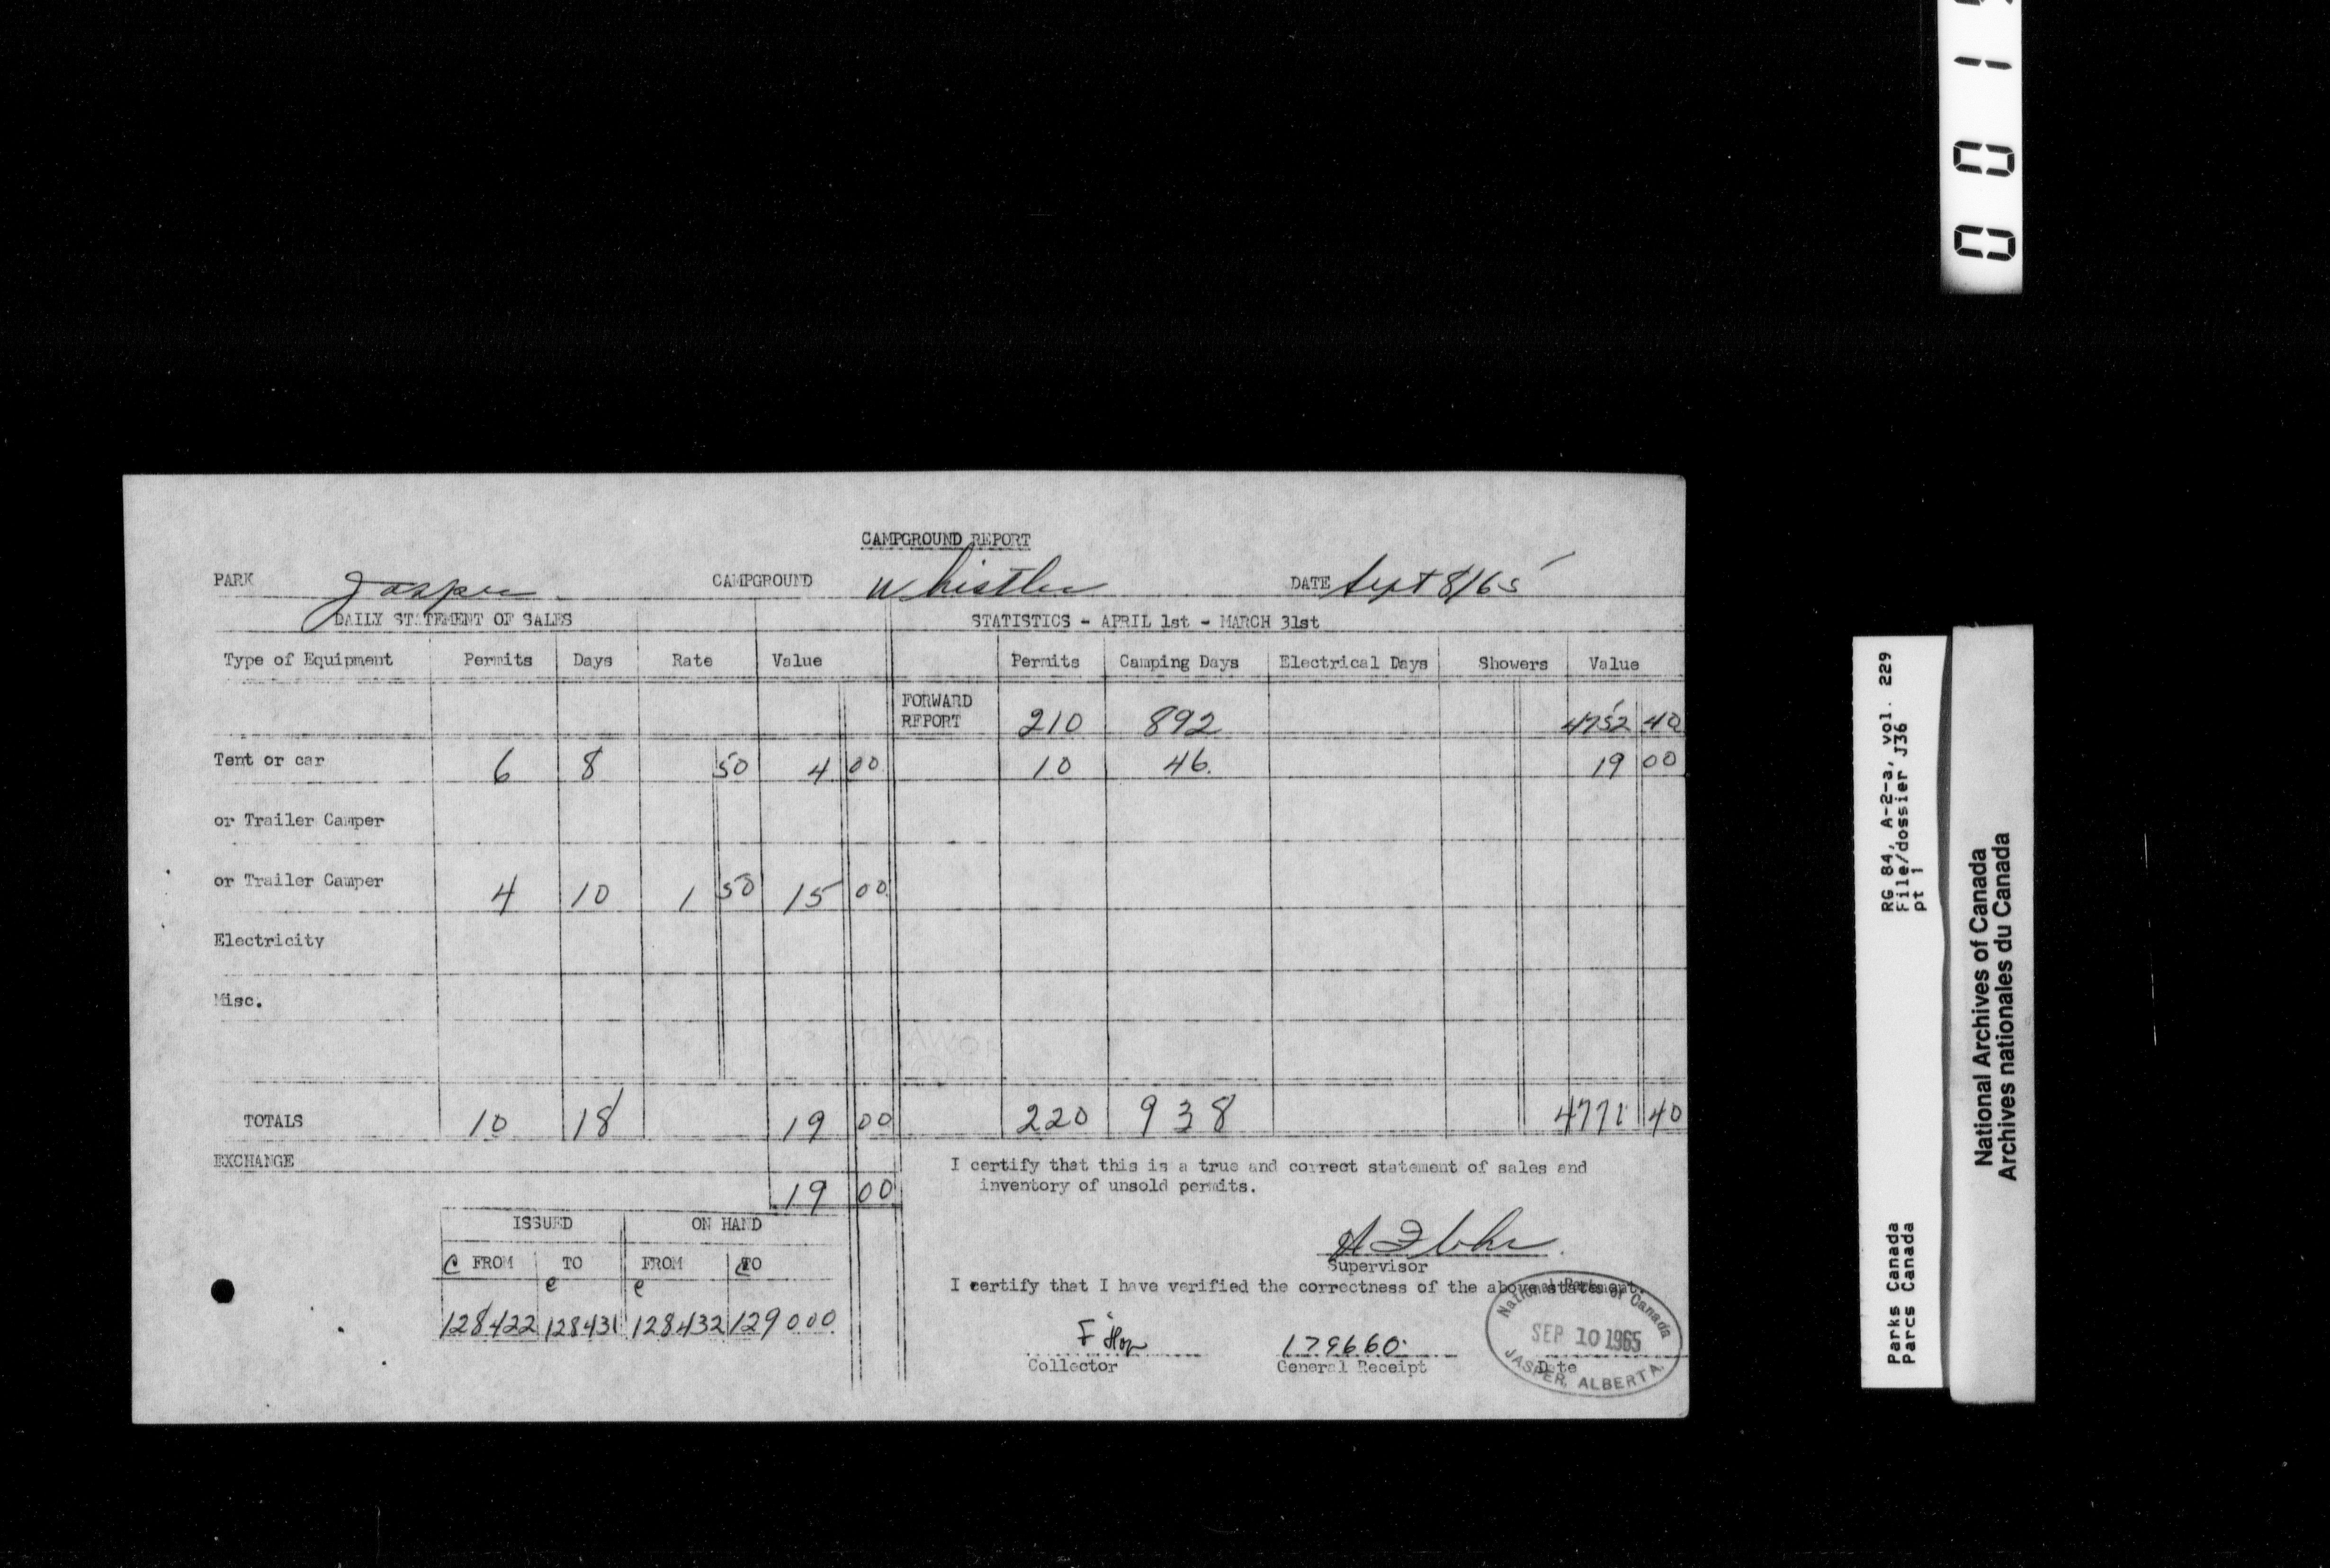 CAMPGROUND REPORT
PARK Jasper CAMPGROUND Whistler DATE Sept 8/65
DAILY STATEMENT OF SALES STATISTICS - APRIL 1st - MARCH 31st
Type of Equipment Permits Days Rate Value Permits Camping Days Electrical Days Showers Value
FORWARD REPORT 210 892 4752 40
Tent or car 6 8 50 4 00 10 46. 19 00
or Trailer Camper
or Trailer Camper 4 10 1 50 15 00
Electricity
Misc.
TOTALS 10 18 19 00 220 938 4771 40
EXCHANGE
19 00
I certify that this is a true and correct statement of sales and
inventory of unsold permits.
Supervisor
I certify that I have verified the correctness of the above statement.
ISSUED ON HAND
C FROM TO FROM TO
128422 128431 128432 129000
179660.
Collector General Receipt Date
National Parks of Canada
SEP 10 1965
JASPER, ALBERTA.
0 0 1
RG 84, A-2-a, vol. 229
File/dossier J36
pt 1
Parks Canada
Parcs Canada
National Archives of Canada
Archives nationales du Canada